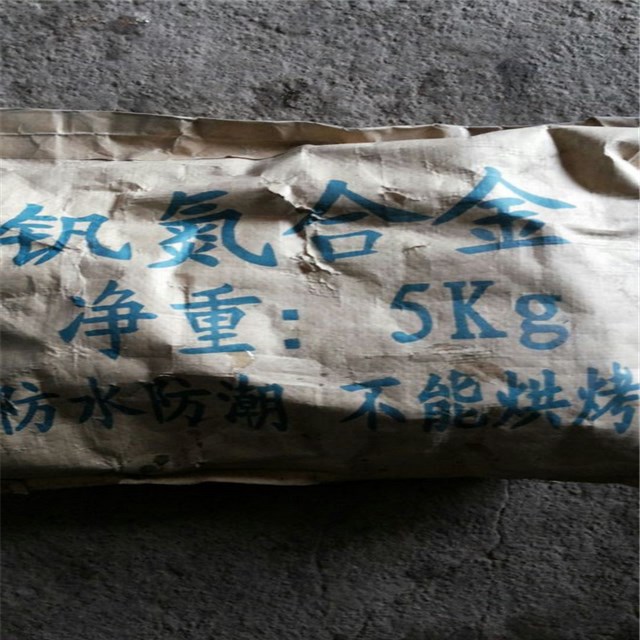 钒氮合金
净重：5Kg
防水防潮 不能烘烤